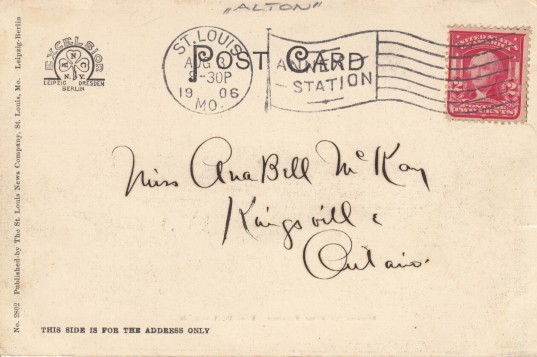 "ALTON"
POST CARD
ST. LOUIS
AUG 3
-30P
1906
MO.
ANNEX
STATION
EXCELSIOR
N.Y.
LEIPZIG DRESDEN
BERLIN
2 2
Miss AnaBell McKay
Kingsville
Ontario.
No. 2802 Published by The St. Louis News Company, St. Louis, Mo. Leipzig-Berlin
THIS SIDE IS FOR THE ADDRESS ONLY